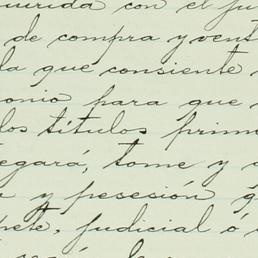 con el
de compra y vent
la que consiente
onio para que
los títulos prim
egará, tome y
y pesesión
pete, judicial ó